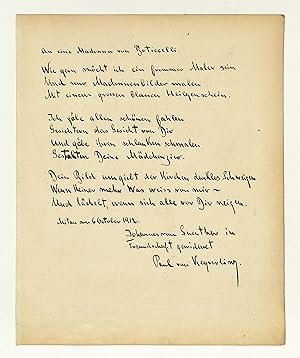 An eine Madonna von Boticcelli.
Wie gern möcht ich ein frommer Maler sein
Und nur Madonnenbilder malen
Mit einem grossen blauen Heilgenschein.
Ich gäbe allen schönen fahlen
Gesichtern das Gesicht von Dir
Und gäbe ihren schlanken schmalen
Gestalten Deine Mädchenzier.
Dein Bild umgiebt der Kirchen dunkles Schweigen
Wenn Keiner mehr was weiss von mir –
Und lächelt, wenn sich alle vor Dir neigen.
Mitau am 6 October 1912.
Johannes von Guenther in
Freundschaft gewidmet
Paul von Keyserling.